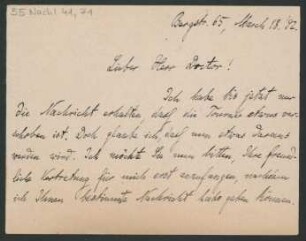 55 Nachl 41, 71
Bergstr. 65, March 18. 92.
Lieber Herr Doctor!
Ich habe bis jetzt nur
die Nachricht erhalten, daß ein Termin etwas ver-
schoben ist. Doch glaube ich daß nun etwas daraus
werden wird. Ich möchte Sie nun bitten, Ihre freund-
liche Vertretung für mich erst anzufangen, nachdem
ich Ihnen bestimmte Nachricht habe geben können.